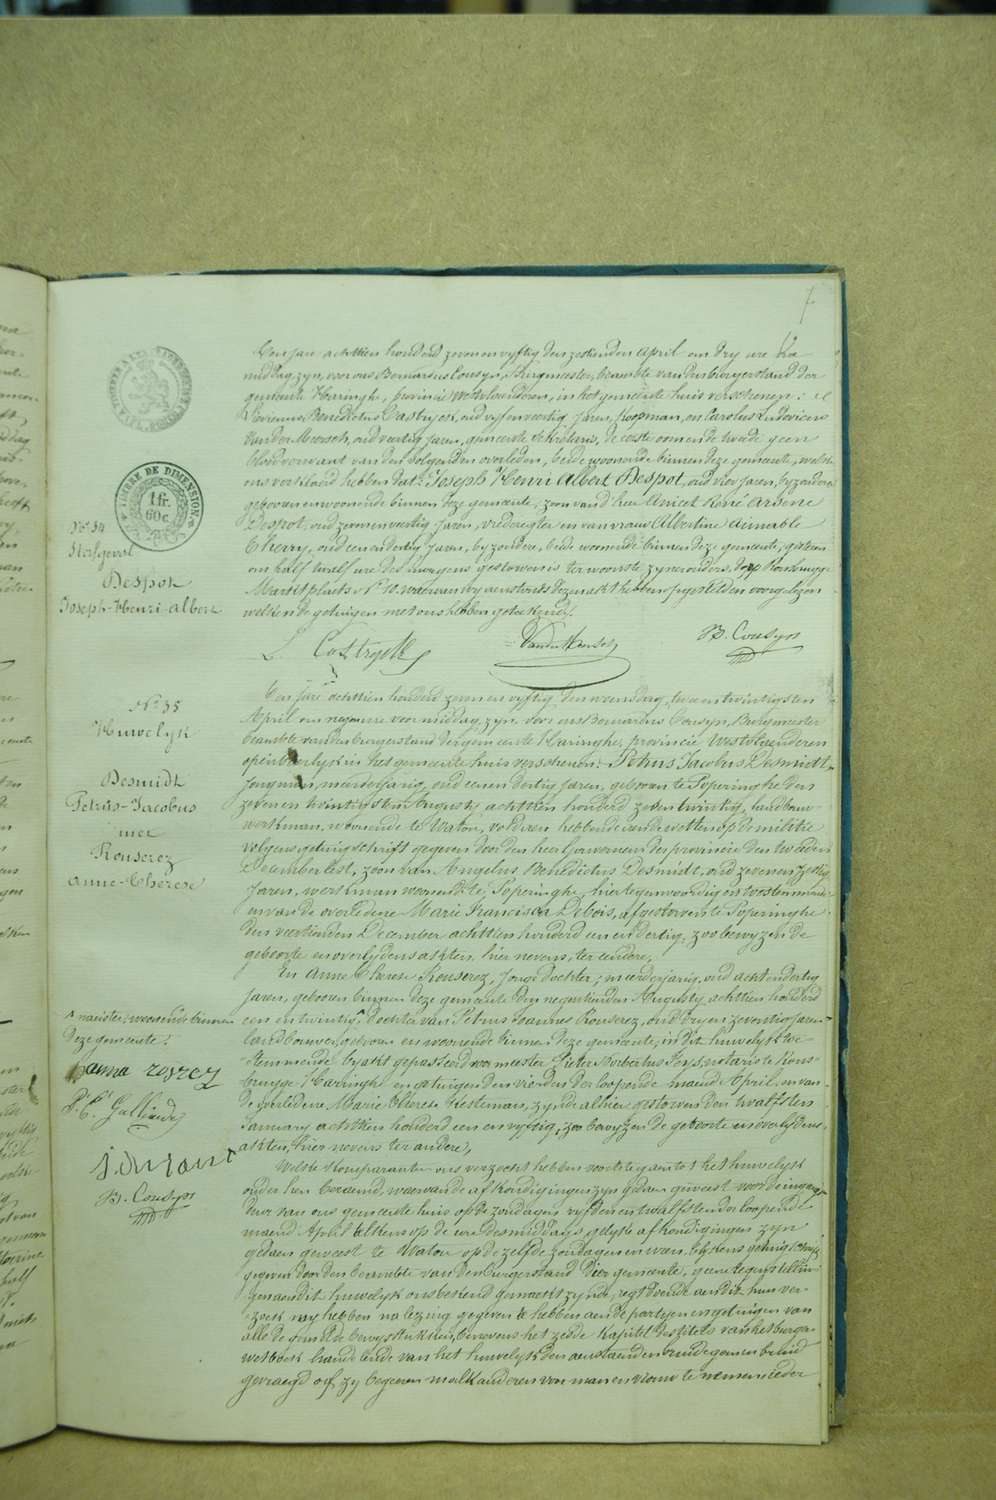 TIMBRE DE DIMENSION
1 fr.
60 c.
N° 34
Sterfgeval
Despot
Joseph-Henri-Albert
Ten jare achttien honderd zeven en vyftig den zestienden April om dry ure na
middag zyn, voor ons Bernardus Cousyn, Burgemeester, beambte van den burgerstand der
gemeente Haringhe, provincie Westvlaenderen, in het gemeente huis verschenen:
Benedictus Castryck, oud vyf en veertig jaren, koopman, en Carolus Ludovicus
Vander Meersch, oud veertig jaren, gemeente sekretaris, de eerste oom en de tweede geen
bloedverwant van den volgenden overleden, beide woonende binnen deze gemeente, welke
ons verklaard hebben dat Joseph Henri Albert Despot, oud vier jaren, byzondere
geboren en woonende binnen deze gemeente, zoon van d'heer Anicet René Arsene
Despot, oud zeven en veertig jaren, vrederegter en van vrouw Albertine Aimable
Cherry, oud een en dertig jaren, byzondere, beide woonende binnen deze gemeente, gisteren
om half twalf ure des morgens gestorven is ter woonste zyner ouders, dorp Rousbrugge
Marktplaets N° 18. waervan wy aenstonds dezen akt hebben opgesteld en voorgelezen
welken de getuigen met ons hebben geteekend.
L. Castryck
Vander Meersch
B. Cousyn
N° 35
Huwelyk
Desmidt
Petrus-Jacobus
met
Rouserez
Anne-Therese
Ten jare achttien honderd zeven en vyftig den woensdag, twee en twintigsten
April om negen ure voor middag, zyn, voor ons Bernardus Cousyn, Burgemeester
beambte van den burgerstand der gemeente Haringhe, provincie Westvlaenderen
openbaerlyk in het gemeente huis verschenen: Petrus Jacobus Desmidt
jongman, meerderjarig, oud een en dertig jaren, geboren te Poperinghe den
zeven en twintigsten Augusty achttien honderd zeven twintig, landbouw-
werkman, woonende te Watou, voldaen hebbende aen de wetten op de militie
volgens getuigschrift gegeven door den heer Gouverneur der provincie den tweeden
December lest, zoon van Angelus Benedictus Desmidt, oud zeven en zestig
jaren, werkman woonende te Poperinghe, hier tegenwoordig en toestemmende
en van de overledene Marie Francisca Debois, afgestorven te Poperinghe
den veertienden December achttien honderd een en dertig, zoo bewyzen de
geboorte en overlydens akten, hier nevens, ter eendere,
En Anne Therese Rouserez, jonge dochter, meerderjarig, oud acht en dertig
jaren, geboren binnen deze gemeente den negentienden Augusty achttien honderd
^ naeister, woonende binnen
deze gemeente.
een en twintig ^ dochter van Petrus Joannes Rouserez, oud dry en zeventig jaren
landbouwer, geboren en woonende binnen deze gemeente, in dit huwelyk toe-
stemmende by akt gepasseerd voor meester Pieter Norbertus Feys, notaris te Rous-
brugge-Haringhe en getuigen den vierden der loopende maend April, en van
de overledene Marie Therese Kesteman, zynde alhier gestorven den twalfsten
January achttien honderd een en vyftig, zoo bewyzen de geboorte en overlydens
akten, hier nevens ter andere,
anna roszez
J. Durant
B. Cousyn
Welke komparanten ons verzocht hebben voorts te gaen tot het huwelyk
onder hen beraemd, waervan de afkondigingen zyn gedaen geweest voor de ingang-
deur van ons gemeente huis op de zondagen vyfden en twalfsten der loopende
maend April telkens op de ure des middags gelyke afkondigingen zyn
gedaen geweest te Watou op dezelfde zondagen en uren, blykens getuigschrift
gegeven door den beambte van den burgerstand dier gemeente, geene tegenstelling
jegens dit huwelyk ons bekend gemaekt zynde, regt doende aen dit hun ver-
zoek wy hebben na lezing gegeven te hebben aen de partyen en getuigen van
alle de gemelde bewysstukken, benevens het zesde kapitel des titels van het burger
wetboek handelende van het huwelyk den aenstaenden bruidegom en bruid
gevraegd of zy begeeren malkanderen voor man en vrouw te nemen, ieder